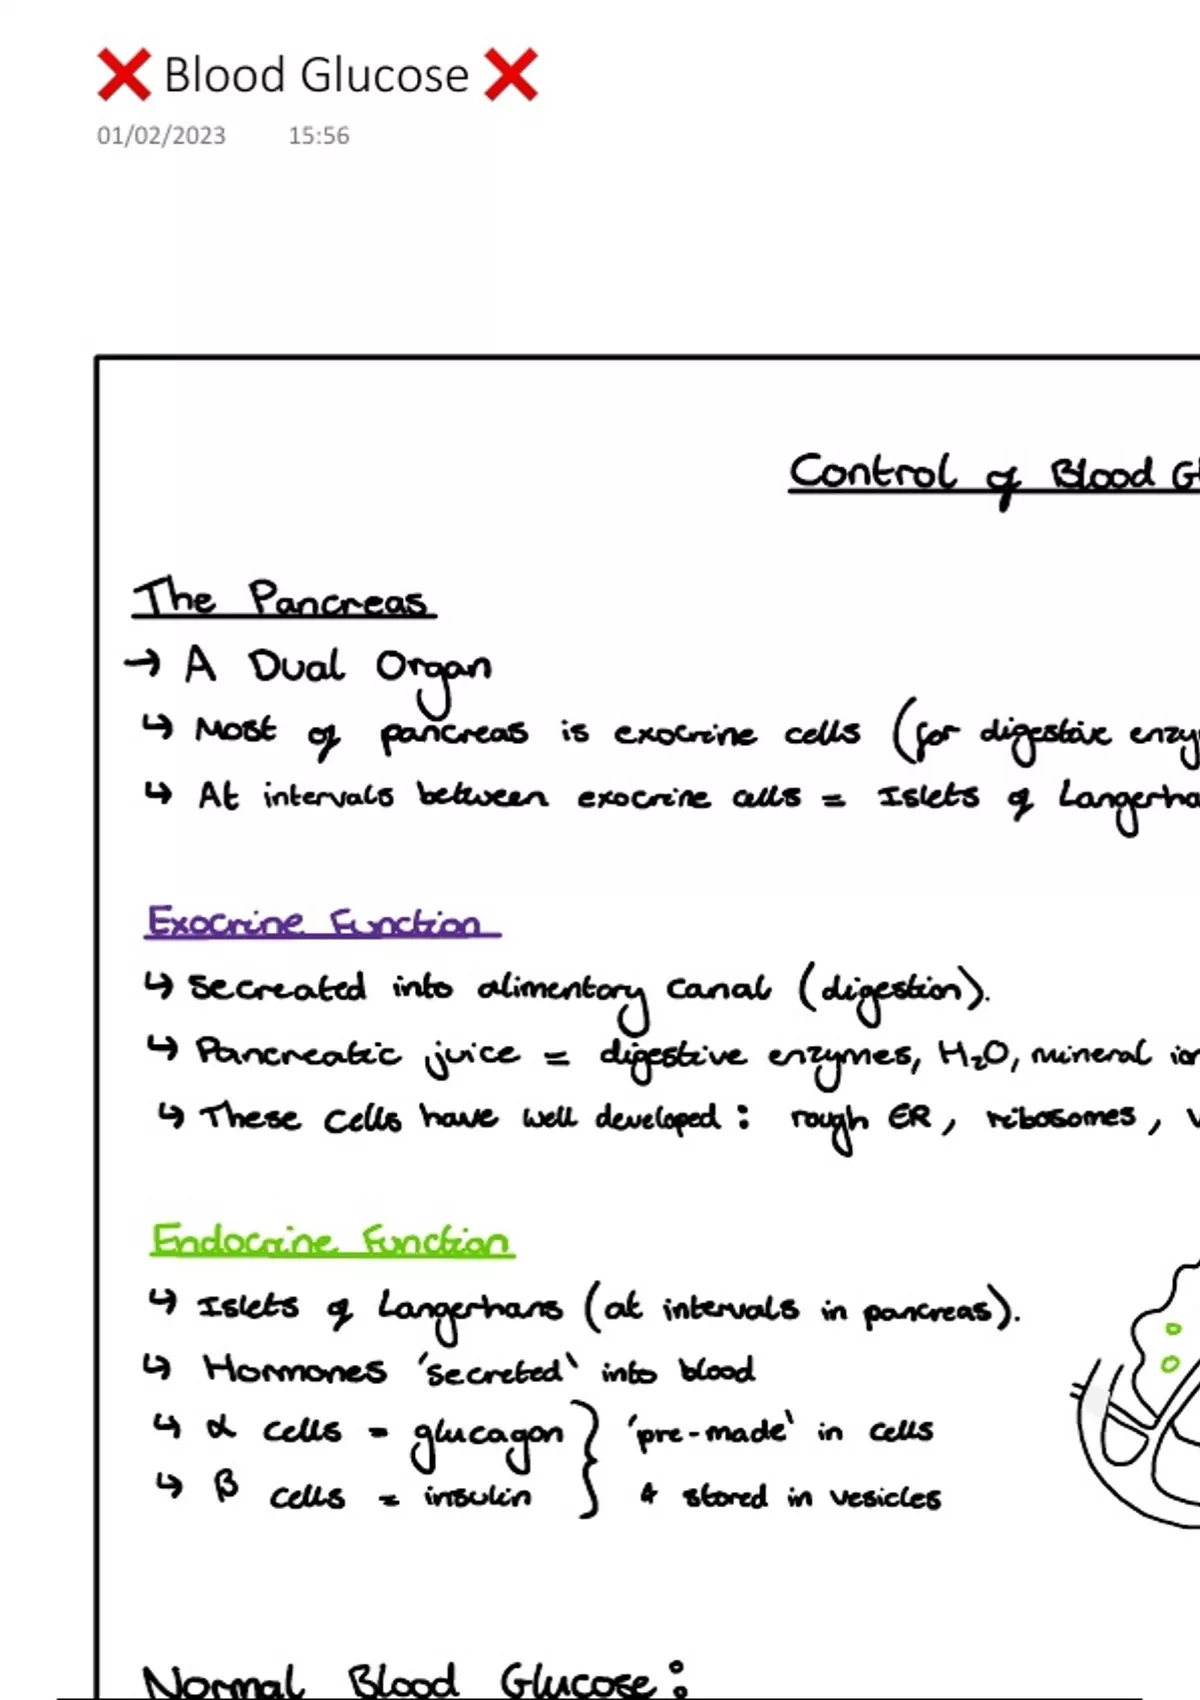 ❌ Blood Glucose ❌
01/02/2023 15:56
Control of Blood Gl
The Pancreas
→ A Dual Organ
↳ Most of pancreas is exocrine cells (for digestive enzy
↳ At intervals between exocrine cells = Islets of Langerha
Exocrine Function
↳ Secreated into alimentory canal (digestion).
↳ Pancreatic juice = digestive enzymes, H₂O, mineral ion
↳ These cells have well developed: rough ER, ribosomes, v
Endocrine Function
↳ Islets of Langerhans (at intervals in pancreas).
↳ Hormones 'secreted' into blood
↳ α cells = glucagon } 'pre-made' in cells
↳ β cells = insulin } & stored in vesicles
Normal Blood Glucose: